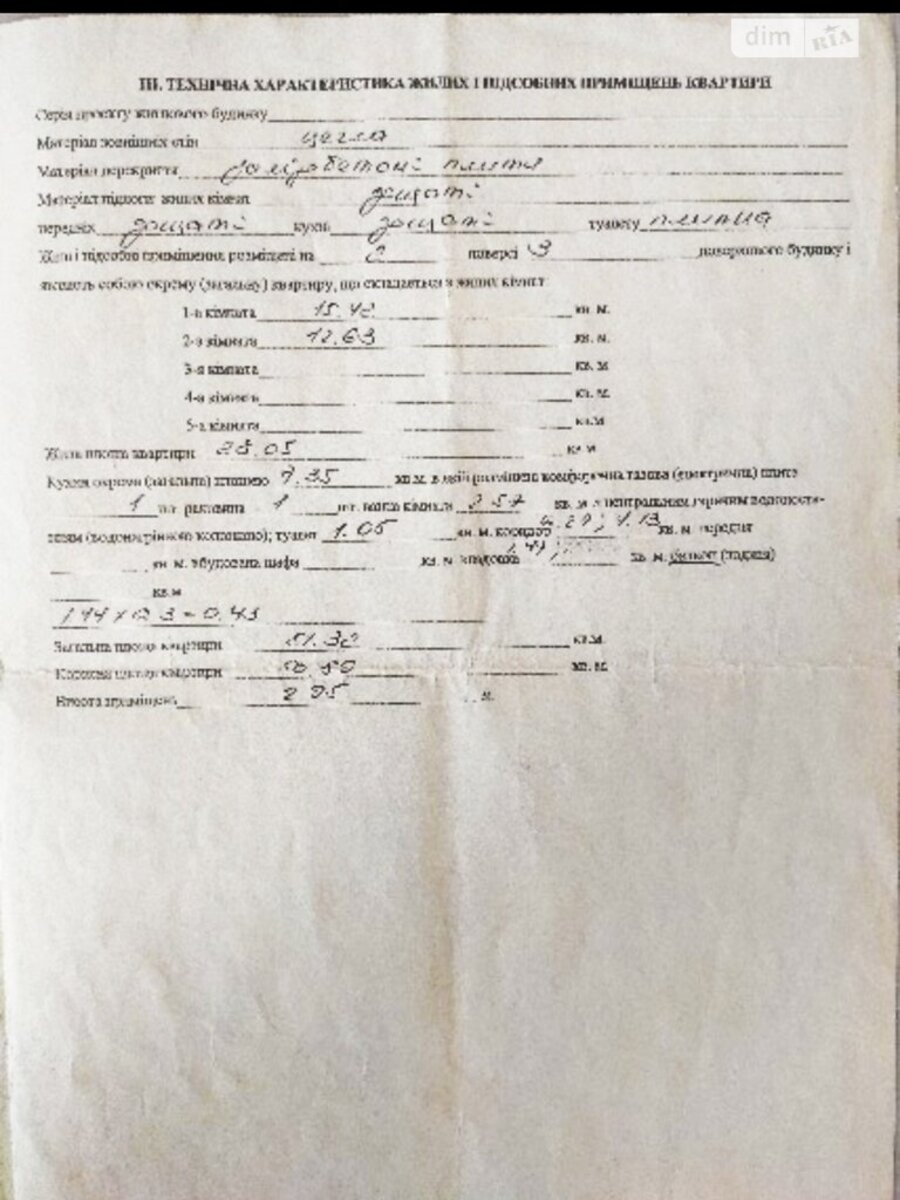 dim RIA
III. ТЕХНІЧНА ХАРАКТЕРИСТИКА ЖИЛИХ І ПІДСОБНИХ ПРИМІЩЕНЬ КВАРТИРИ
Серія проекту житлового будинку
Матеріал зовнішніх стін цегла
Матеріал перекриття залізобетоні плити
Матеріал підлоги жилих кімнат дощаті
передніх дощаті кухні дощаті туалету плитка
Жилі і підсобні приміщення розміщені на 2 поверсі 3 поверхового будинку і
являють собою окрему (загальну) квартиру, що складається з жилих кімнат:
1-а кімната 15.42 кв. м.
2-а кімната 12.63 кв. м.
3-я кімната кв. м
4-а кімната кв. м.
5-а кімната кв.м
Жила площа квартири 28.05 кв м
Кухня окрема (загальна) площею 7.35 кв.м. в якій розміщена газова (електрична) плита
1 шт. раковина 1 шт. ванна кімната 2.57 кв. м з центральним гарячим водопоста-
чанням (водонагрівною колонкою); туалет 1.05 кв. м. коридор 4.13 кв. м. передня
кв. м. вбудована шафа кв. м. кладовка кв. м. балкон (лоджія)
кв.м
1.44 х 0.3 = 0.43
Загальна площа квартири 51.32 кв.м.
площа квартири кв. м.
Висота приміщень м.